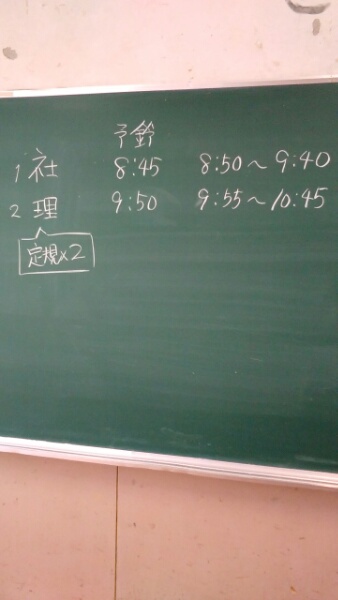 予鈴
1 社 8:45 8:50～9:40
2 理 9:50 9:55～10:45
定規×2